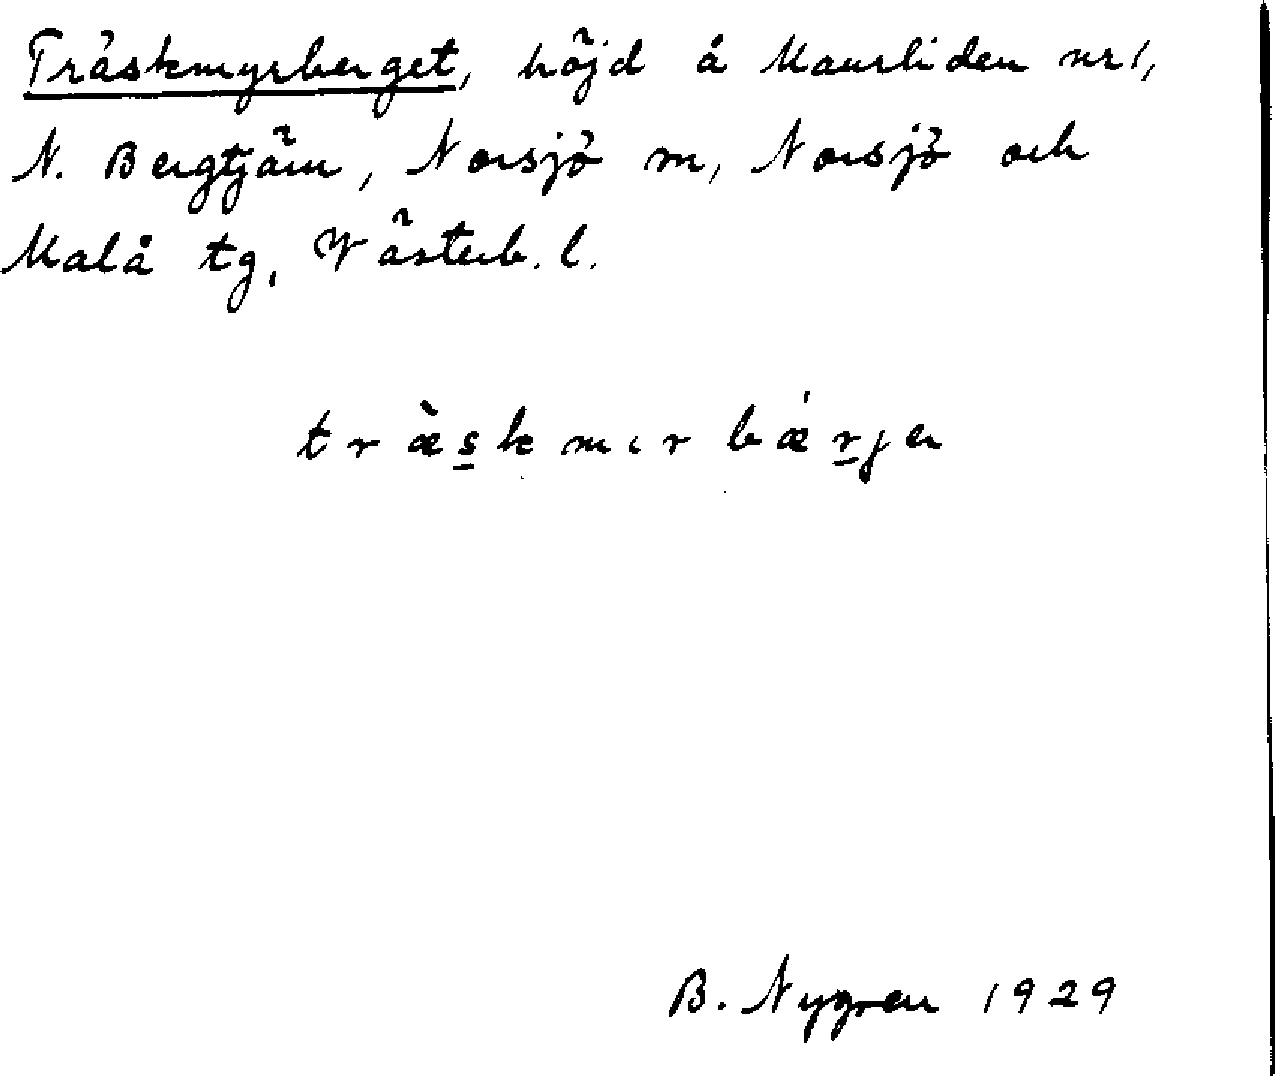 Träskmyrberget, höjd å Maurliden nr 1,
N. Bergtjärn, Norsjö m, Norsjö och
Malå tg, Västerb. l.
træ̀skmırbǽrjen
B. Nygren 1929